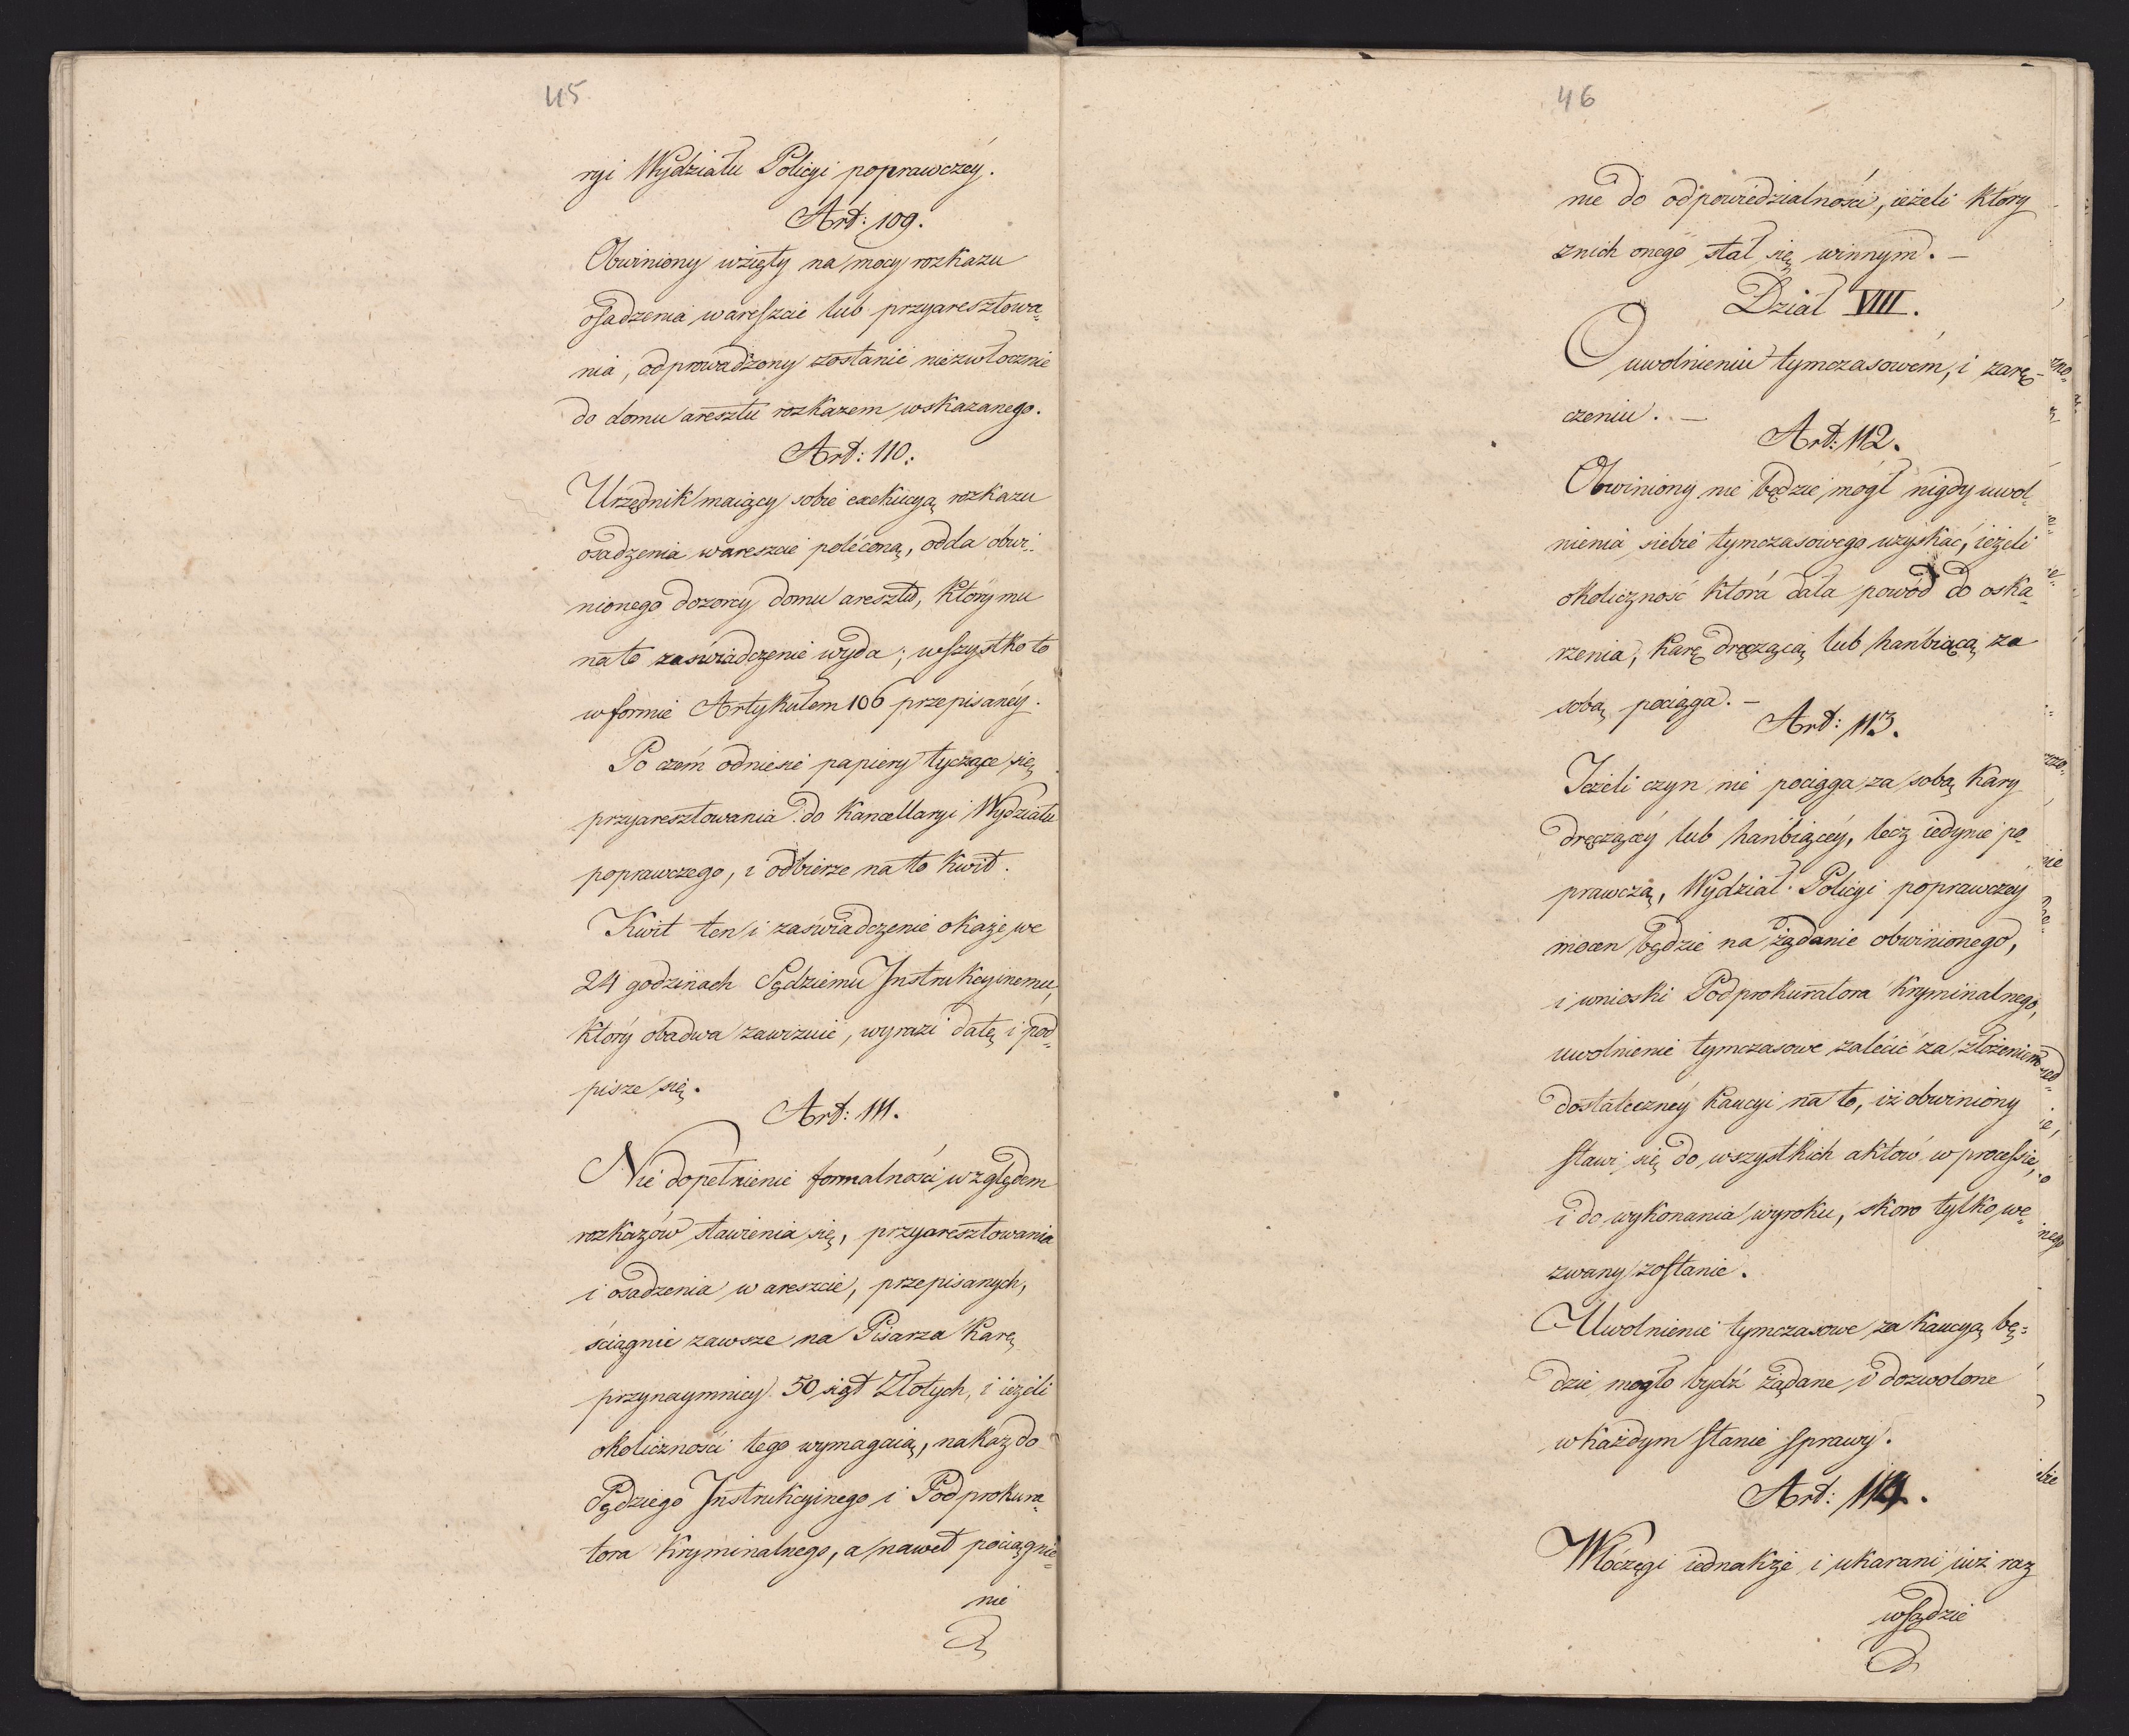 45
ryi Wydziału Policyi poprawczéy.
Art: 109.
Obwiniony wzięty na mocy rozkazu
osadzenia w areszcie lub przyaresztowa„
nia, odprowadzony zostanie niezwłocznie
do domu aresztu rozkazem wskazanego.
Art: 110:
Urzędnik maiący sobie exekucyą rozkazu
osadzenia w areszcie poleconą, odda obwi„
nionego dozorcy domu aresztu, który mu
na to zaświadczenie wyda; wszystko to
w formie Artykułem 106 przepisanéy.
Po czém odniesie papiery tyczące się
przyaresztowania do Kancellaryi Wydziału
poprawczego, i odbierze na to kwit.
Kwit ten i zaświadczenie okaże we
24 godzinach Sędziemu Instrukcyinemu,
który obadwa zawizuie, wyrazi datę i pod„
pisze się.
Art: 111.
Nie dopełnienie formalności względem
rozkazów stawienia się, przyaresztowania
i osadzenia w areszcie, przepisanych,
ściągnie zawsze na Pisarza karę
przynaymniey 50 siąt Złotych, i ieżeli
okoliczności tego wymagaią, nakaz do
Sędziego Instrukcyinego i Podprokura„
tora Kryminalnego, a nawet pociągnie„
nie
46
nie do odpowiedzialności, ieżeli który
z nich onego stał się winnym. —
Dział VIII.
O uwolnieniu tymczasowém, i zarę„
czeniu. —
Art: 112.
Obwiniony nie będzie mógł nigdy uwol„
nienia siebie tymczasowego uzyskać, ieżeli
okoliczność która dała powód do oska„
rżenia, karę dręczącą lub hańbiącą za
sobą pociąga. —
Art: 113.
Ieżeli czyn nie pociąga za sobą kary
dręczącéy lub hańbiącéy, lecz iedynie po„
prawczą, Wydział Policyi poprawczéy
mocen będzie na żądanie obwinionego,
i wnioski Podprokuratora Kryminalnego,
uwolnienie tymczasowe zalécić za złożeniem
dostatecznéy kaucyi na to, iż obwiniony
stawi się do wszystkich aktów w processie,
i do wykonania wyroku, skoro tylko we„
zwany zostanie.
Uwolnienie tymczasowe za kaucyą bę„
dzie mogło bydź żądane i dozwolone
w każdym stanie sprawy.
Art: 114.
Włóczęgi iednakże i ukarani iuż raz
w sądzie